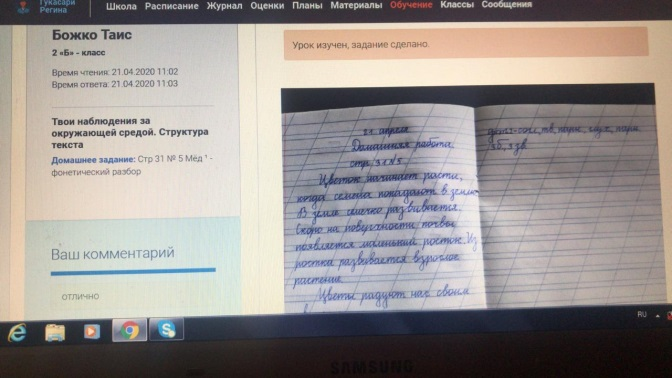 Гукасари
Регина
Школа Расписание Журнал Оценки Планы Материалы Обучение Классы Сообщения
Божко Таис
2 «Б» - класс
Время чтения: 21.04.2020 11:02
Время ответа: 21.04.2020 11:03
Твои наблюдения за
окружающей средой. Структура
текста
Домашнее задание: Стр 31 № 5 Мёд ¹ -
фонетический разбор
Ваш комментарий
отлично
Урок изучен, задание сделано.
21 апреля
Домашняя работа
стр. 31 № 5.
Цветок начинает расти,
когда семена попадают в землю.
В земле семечко развивается.
Скоро на поверхности почвы
появляется маленький росток. Из
ростка развивается взрослое
растение.
Цветы радуют нас своим
3б, 3зв
RU
SAMSUNG